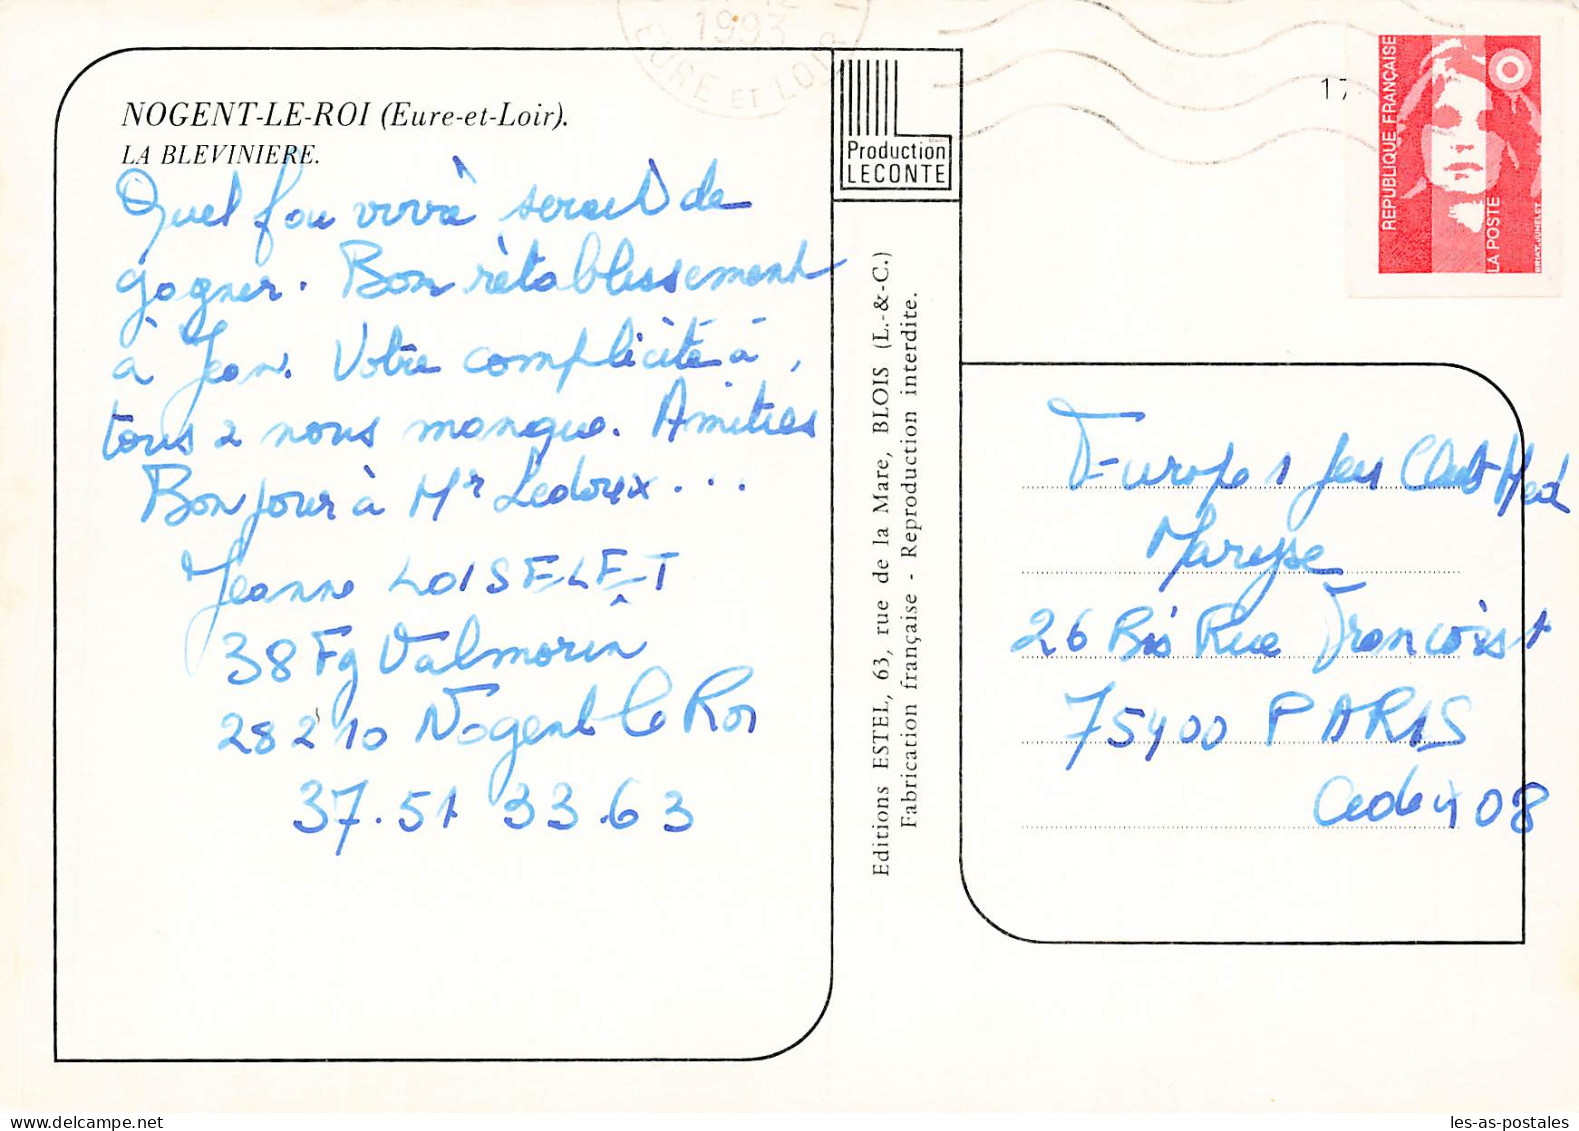 1993
EURE ET LOIR
NOGENT-LE-ROI (Eure-et-Loir).
LA BLEVINIERE.
Quel fou serait de
gagner. Bon rétablissement
à Jean. Votre complicité à
tous 2 nous manque. Amitiés
Bonjour à Mr Ledoux...
Jeanne LOISELET
38 Fg Valmorin
28210 Nogent le Roi
37.51 33.63
Production
LECONTE
Editions ESTEL, 63, rue de la Mare, BLOIS (L.-&-C.)
Fabrication française - Reproduction interdite.
17
REPUBLIQUE FRANÇAISE
LA POSTE
BRIAT-JUMELET
Europe 1 Jeu Club Med
Maryse
26 Bis Rue François 1
75400 PARIS
Cedex 08
les-as-postales